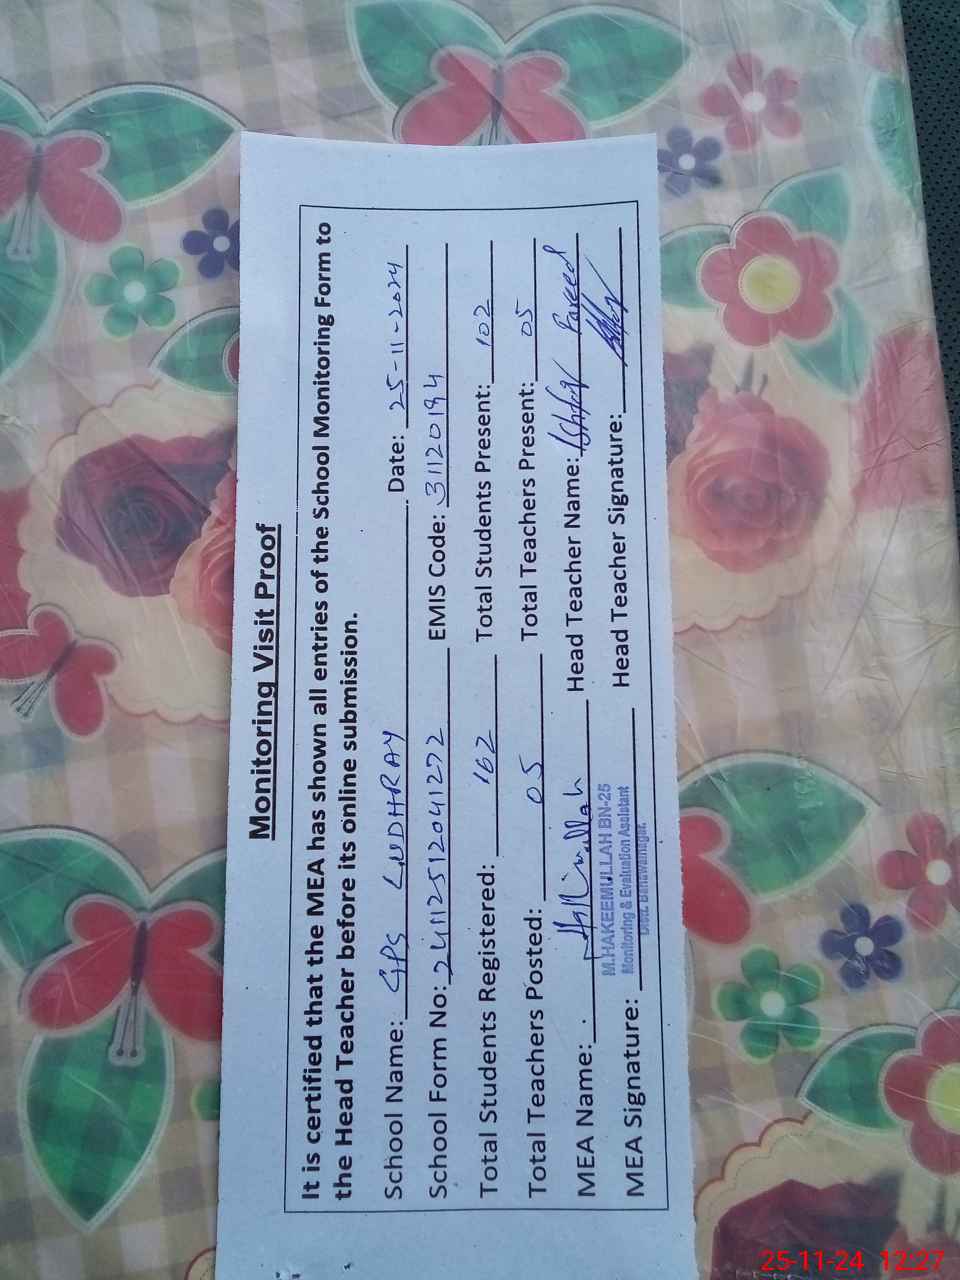 Monitoring Visit Proof
It is certified that the MEA has shown all entries of the School Monitoring Form to
the Head Teacher before its online submission.
School Name: GPS LUDHRAY Date: 25-11-2024
School Form No: 24112512041272 EMIS Code: 31120194
Total Students Registered: 162 Total Students Present: 102
Total Teachers Posted: 05 Total Teachers Present: 05
MEA Name: Head Teacher Name: Fareed
M.HAKEEMULLAH BN-25
MEA Signature: Monitoring & Evaluation Assistant Head Teacher Signature:
Distt. Bahawalnagar.
25-11-24 12:27